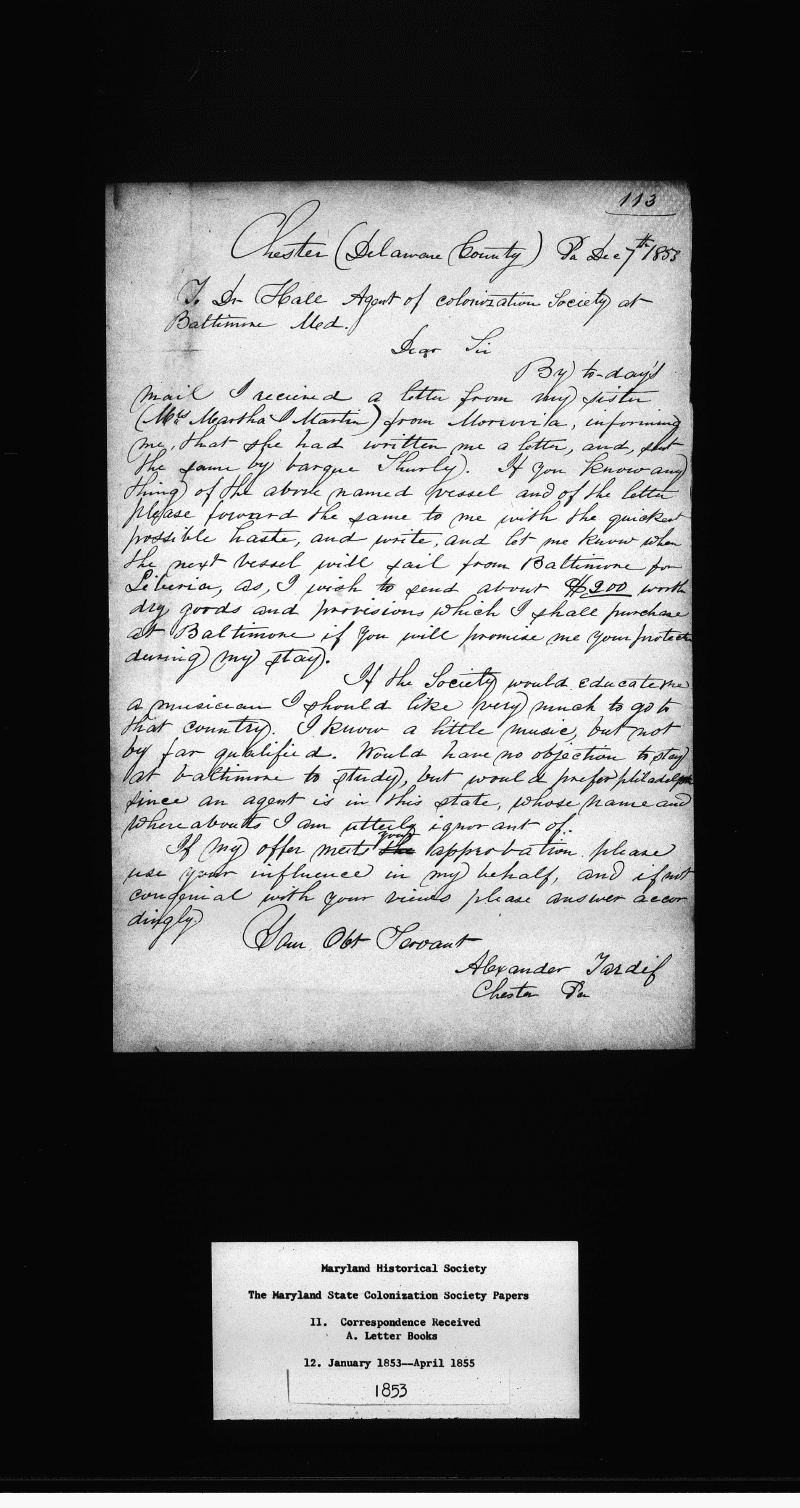 113
Chester (Delaware County) Pa Dec 7th 1853
To Dr Hall Agent of colonization Society at
Baltimore Med.
Dear Sir
By to-day's
mail I recieved a letter from my sister
(Mrs Martha I Martin) from Morovila, informing
me, that she had written me a letter, and, sent
the same by barque Shurly. If you know any
thing of the above named vessel and of the letter
please forward the same to me with the quickest
possible haste, and write, and let me know when
the next vessel will sail from Baltimore for
Liberia, as, I wish to send about $200 worth
dry goods and provisions which I shall purchase
at Baltimore if you will promise me your protection
during my stay.
If the Society would educate me
a musician I should like very much to go to
that country. I know a little music, but not
by far qualified. Would have no objection to stay
at baltimore to study, but would prefer philadelphia
since an agent is in this state, whose name and
whereabouts I am utterly ignorant of.
If my offer meets the your approbation please
use your influence in my behalf, and if not
congenial with your views please answer accor
dingly
Your Obt Servant
Alexander Tardif
Chester Pa
Maryland Historical Society
The Maryland State Colonization Society Papers
11. Correspondence Received
A. Letter Books
12. January 1853--April 1855
1853